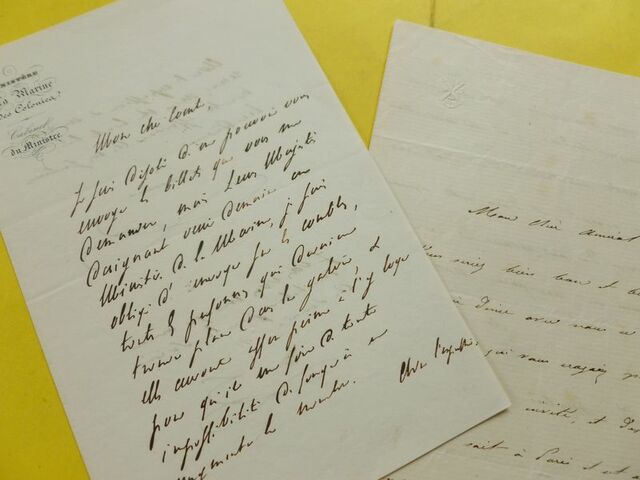 MINISTÈRE
la Marine
des Colonies
Cabinet
du Ministre
Mon cher Comte,
Je suis désolé de ne pouvoir vous
envoyer les billets que vous me
demandez, mais Leurs Majestés
daignant venir demain au
Ministère de la Marine, je suis
obligé d'envoyer sur les combles,
toutes les personnes qui devaient
trouver place dans les galeries, et
elles auront assez peine à s'y loger
pour qu'il me soit de toute
impossibilité de songer à en
augmenter le nombre.
Mon cher amiral
seriez bien bon et b
à dîner avec nous
qui nous
invité, et des
soit à Paris et